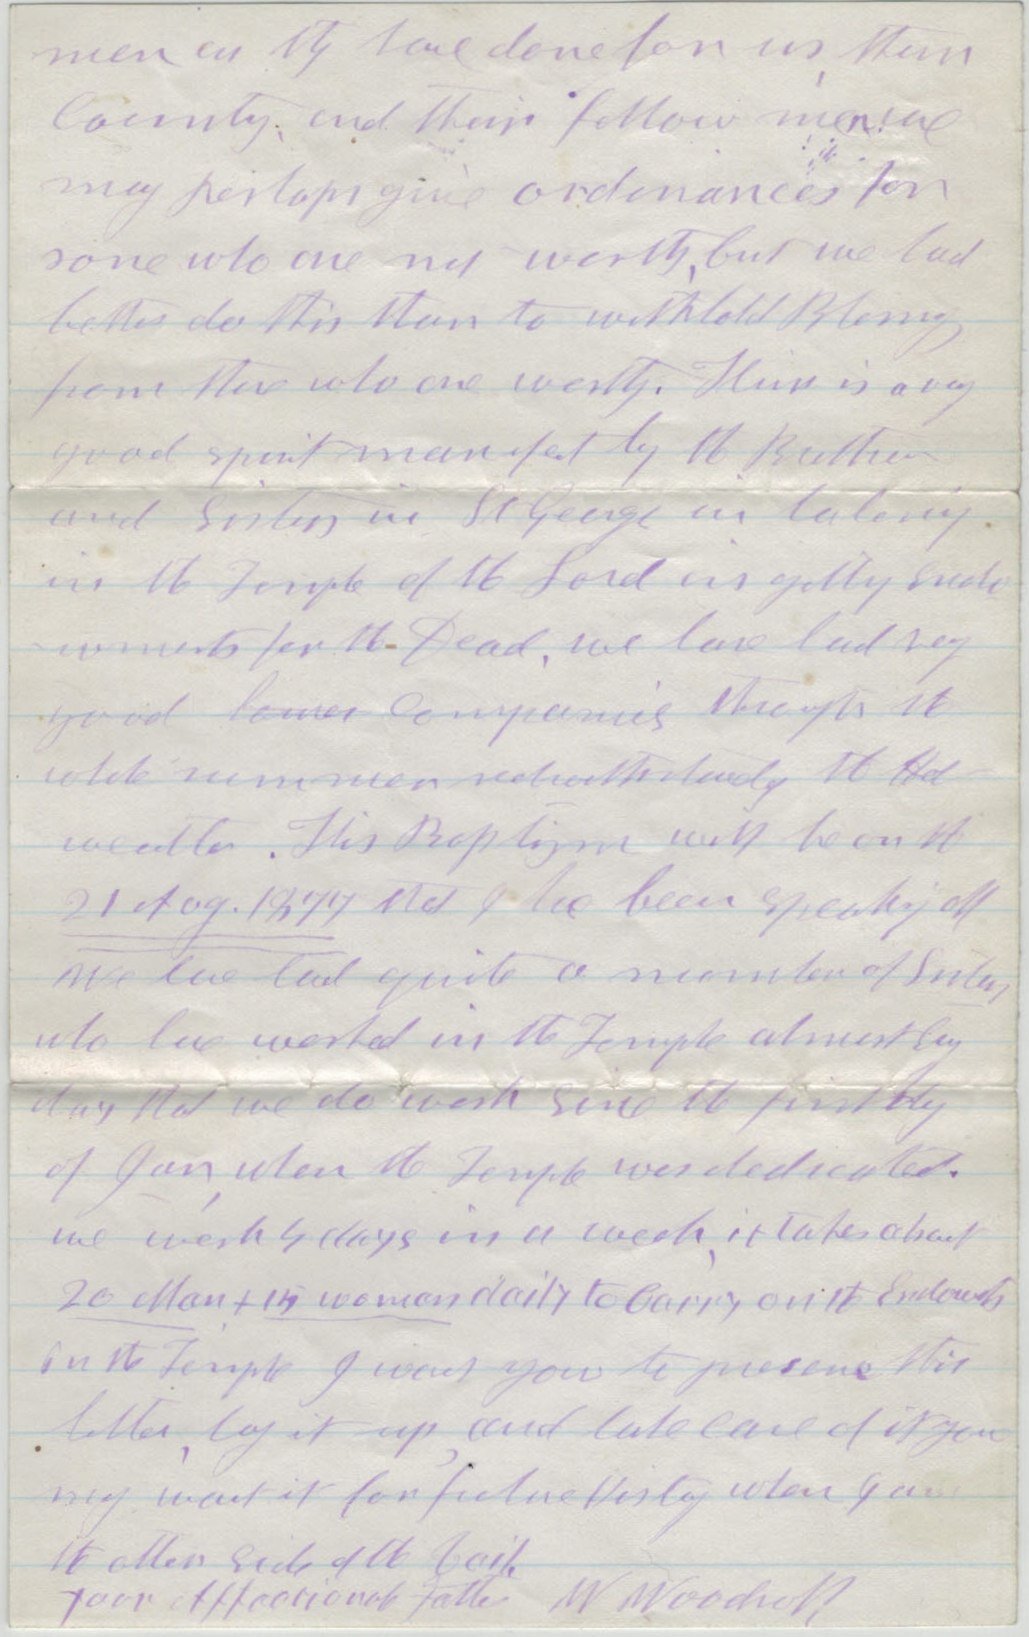 men as they have done for us, their
County, and their fellow men. we
may perhaps give ordinances for
some who are not worthy, but we had
better do this than to withhold Blessings
from those who are worthy. There is a very
good spirit manifest by the Brethren
and Sisters in St George in laboring
in the Temple of the Lord in getting endo
wments for the Dead, we have had very
good Companies through the
whole summer notwithstanding the Hot
weather. This Baptism will be on the
21 Aug. 1877 that I have been speaking off
We have had quite a number of Sisters,
who have worked in the Temple almost evry
day that we do work since the first day
of Jan, when the Temple was dedicated.
we work 4 days in a week, it takes about
20 Man + 15 woman daily to Carry on the Endowmts
in the Temple I want you to preserve this
letter, lay it up, and take care of it you
may want it for future History when I am
the other side of the vail,
your Affectionate Father W Woodruff